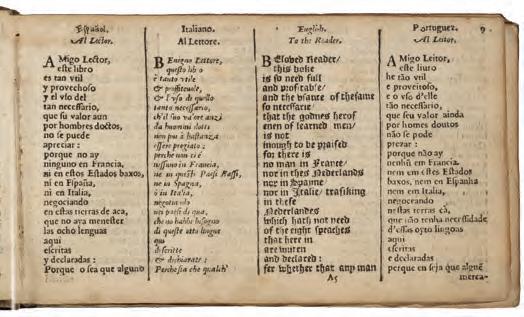 Español.
Al Lector.
AMigo Lector,
este libro
es tan vtil
y provechoso
y el vso del
tan necessario,
que su valor aun
por hombres doctos,
no se puede
apreciar :
porque no ay
ninguno en Francia,
ni en estos Estados baxos,
ni en España,
ni en Italia,
negociando
en estas tierras de aca,
que no aya menester
las ocho lenguas
aqui
escritas
y declaradas :
Porque o sea que alguno
Italiano.
Al Lettore.
BEnigno Lettore,
questo lib o
è tanto vtile
& profitteuole,
& l'vso di quello
tanto necessario,
ch'il suo valore anzi
da huomini dotti
non può à bastanza
essere pregiato :
perche non ci è
nessuno in Francia,
ne in questi Paesi Bassi,
ne in Spagna,
ò in Italia,
negotiando
ne i paesi di qua,
che no habbi bisogno
di queste otto lingue
qui
descritte
& dichiarate :
Perche sia che qualch'
English.
To the Reader.
BEloved Reader/
this boke
is so need full
and profitable/
and the vsance of thesame
so necessarie/
that the goones herof
enen of learned men/
is not
inough to be praised
for there is
no man in France/
nor in thes Nederlands
nor in Spayne
nor in Italie/ trafiking
in these
Nederlandes
which hath not need
of the eight speaches
that here in
are writen
and declared :
for whether that any man
A5
Portuguez. 9.
Al Leitor.
AMigo Leitor,
este livro
he tão vtil
e proveitoso,
e o vso d'elle
tão necessario,
que seu valor ainda
por homens doutos
não se pode
prezar :
porque não ay
nenhũ em Francia.
nem em estes Estados
baxos, nem em Espanha
nem em Italia,
negoceando
nestas terras cà,
que não tenha necessidade
d'essas oyto lingoas
aqui
escritas
e declaradas
perque en seja que alguẽ
merca-